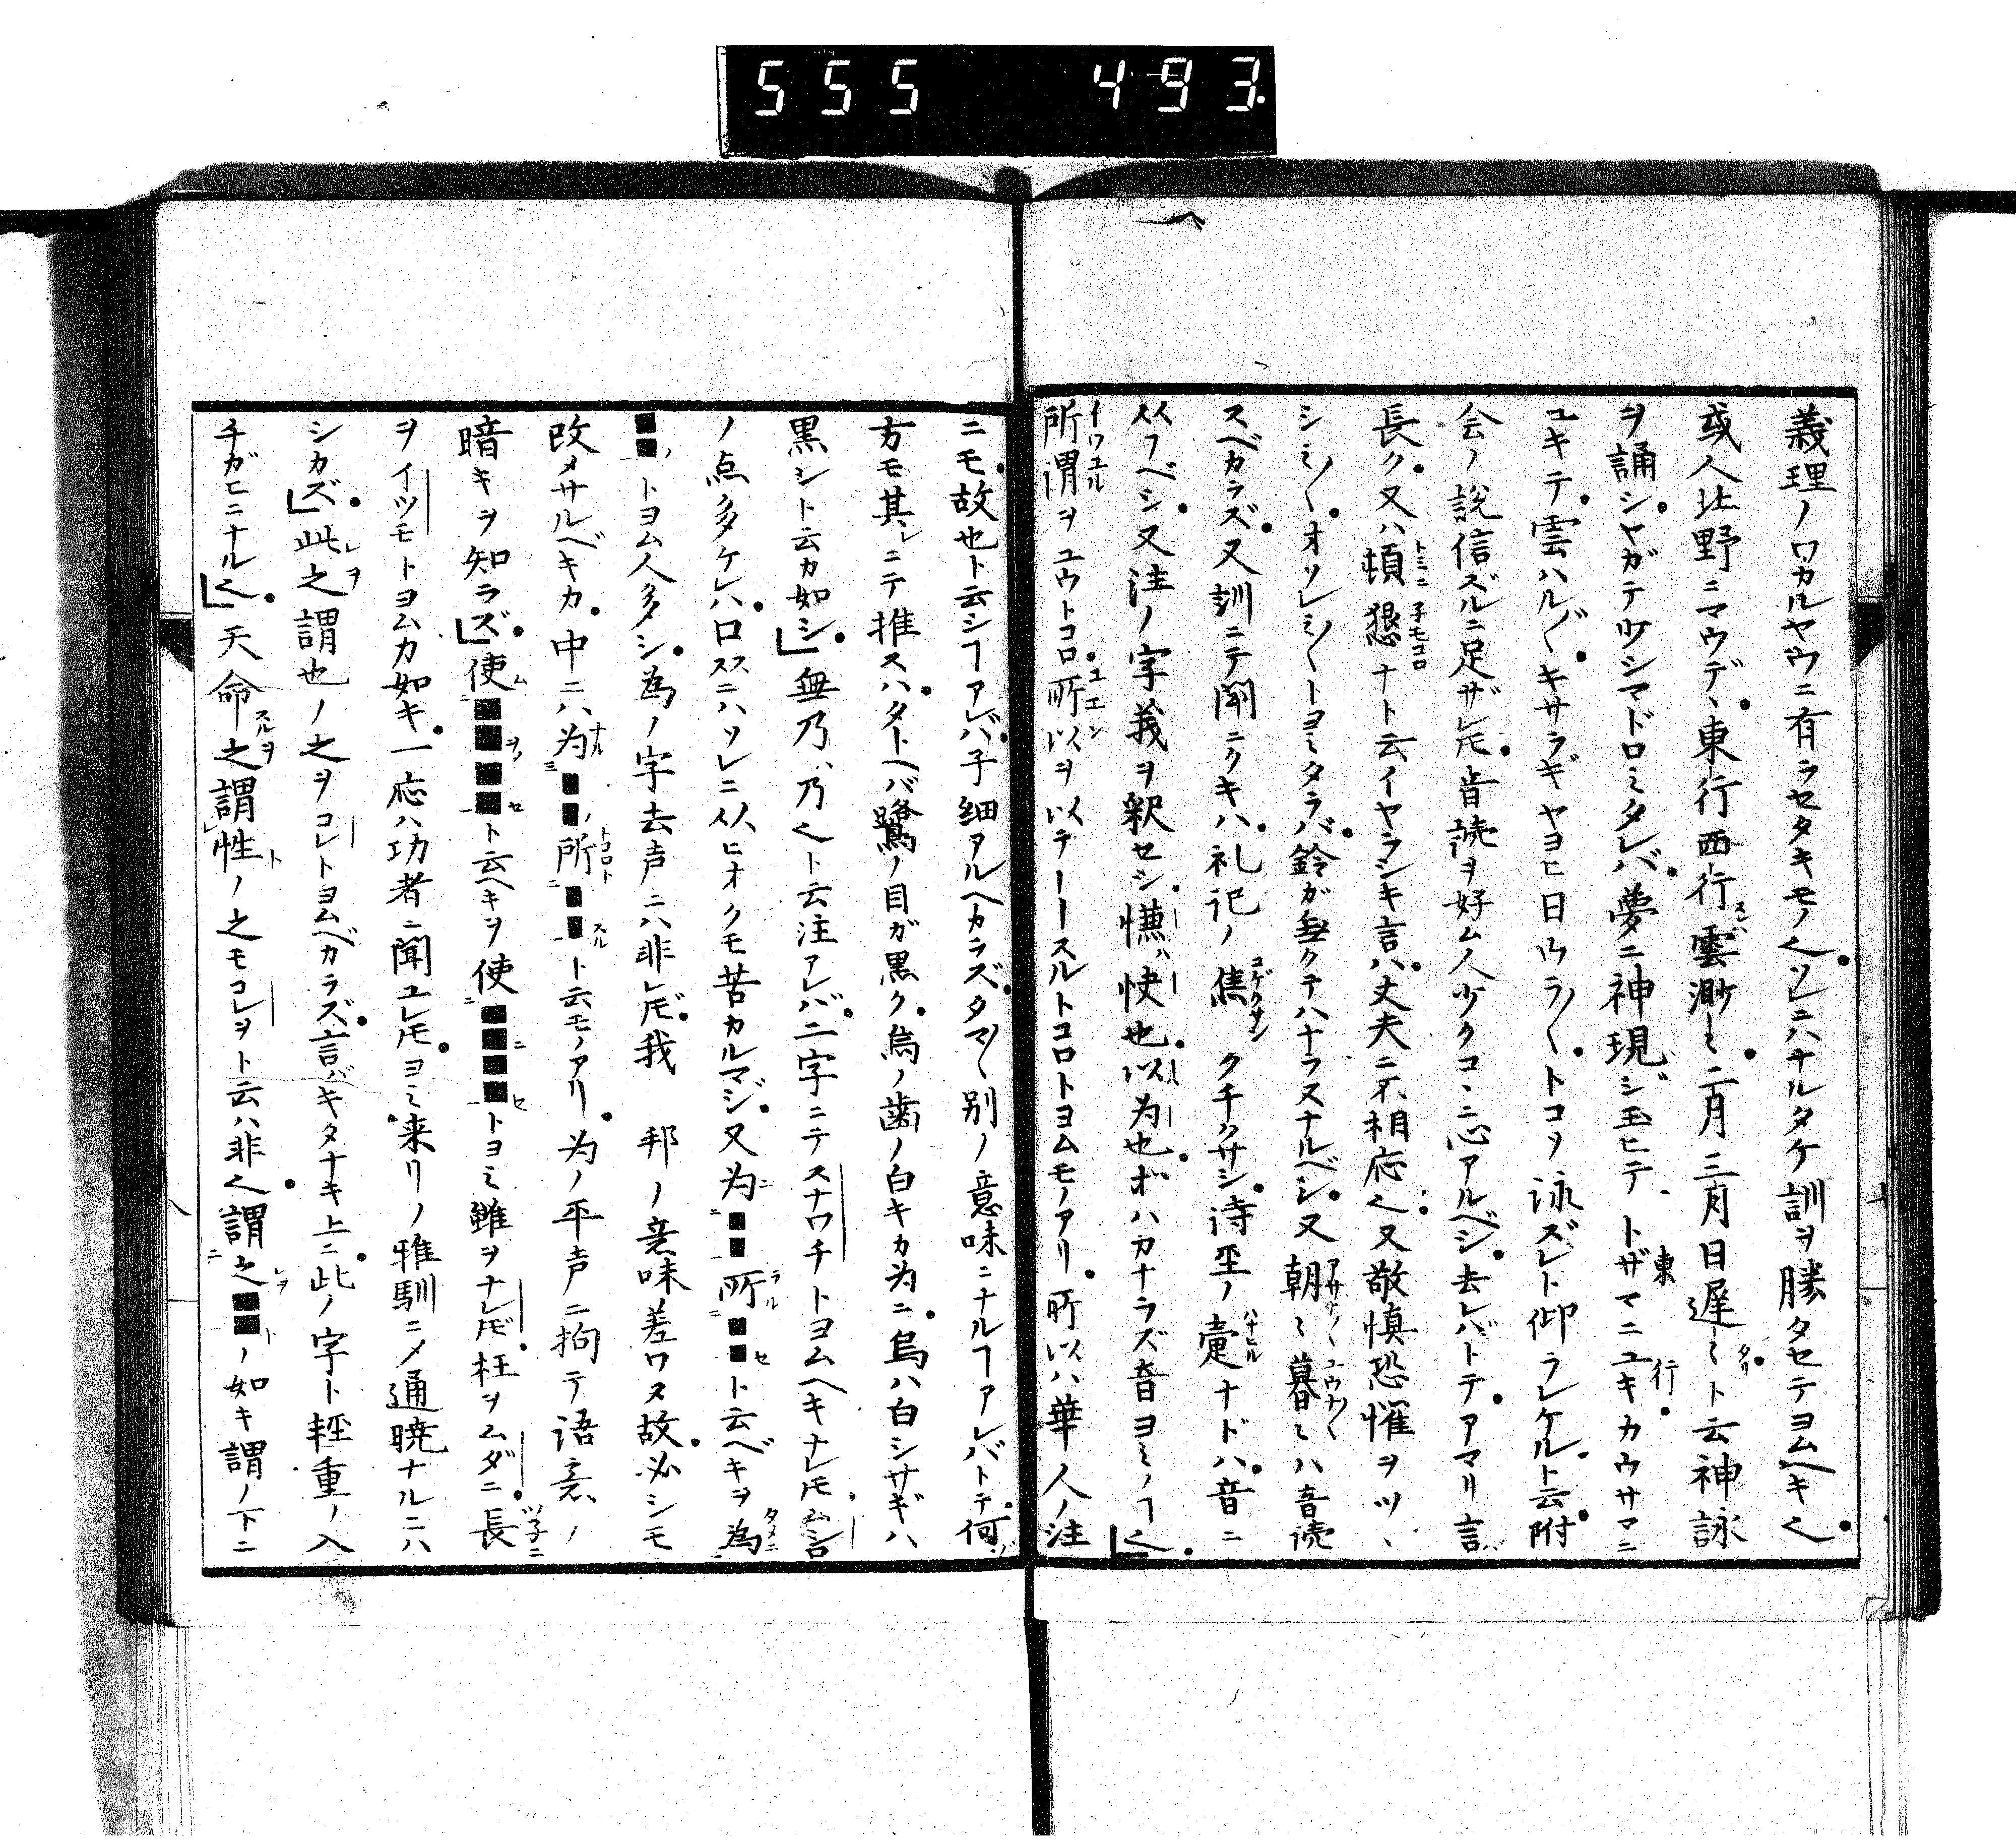 555 493.
義理ノワカルヤウニ有ラセタキモノ也。ソレニハナルタケ訓ヲ勝タセテヨムヘキ也。
或人北野ニマウデ、東行西行雲渺ミ。二月三月日遅ミト云神詠
ヲ誦シ。ヤガテ少シマドロミタレバ。夢ニ神現ジ玉ヒテ。トザマニユキカウサマニ
ユキテ。雲ハル〴〵。キサラギヤヨヒ日ウラ〳〵。トコヲ詠ズレト仰ラレケル。ト云。附
会ノ説信ズルニ足ザレ𪜈。音読ヲ好ム人少クコヽニ心アルベシ。去レバトテ。アマリ言
長ク。又ハ頓懇ナト云イヤラシキ言ハ。丈夫ニ不相応也。又敬慎恐懼ヲツヽ
シミ〳〵。オソレミ〳〵トヨミタラバ。鈴ガ無クテハナラヌナルベシ。又朝ミ暮ミハ音読
スベカラズ。又訓ニテ聞ニクキハ。礼記ノ焦クチクサシ。詩巠ノ疐ナドハ。音ニ
从フベシ。又注ノ字義ヲ釈セシ。慊ハ快也。以ハ為也。オハカナラズ音ヨミノヿ也。
所謂ヲユウトコロ。所以ヲ以テーースルトコロトヨムモノアリ。所以ハ華人ノ注
ニモ。故也ト云シヿアレバ。子細アルヘカラズ。タマ〳〵別ノ意味ニナルヿアレバトテ。何
方モ其レニテ推スハ。タトヘバ鷺ノ目ガ黒ク。烏ノ歯ノ白キカ為ニ。烏ハ白シサギハ
黒シト云カ如シ。」無乃、乃也ト云注アレバ。二字ニテスナワチトヨムヘキナレ𪜈。ムシロ
ノ点多ケレハ。口スヽニハソレニ从ヒオクモ苦カルマジ。又为■■所■■ト云ベキヲ為
■■ノトヨム人多シ。為ノ字去声ニハ非レ𪜈。我 邦ノ意味差ワヌ故。必シモ
改メサルベキカ。中ニハ为■■所■■ト云モノアリ。为ノ平声ニ拘テ語意ノ
暗キヲ知ラズ。」使■■■■ト云ヘキヲ使■■■■トヨミ雖ヲナレ𪜈。枉ヲムダニ。長
ヲイツモトヨムカ如キ。一応ハ功者ニ聞ユレ𪜈。ヨミ来リノ雅馴ニメ通暁ナルニハ
シカズ。」此之謂也ノ之ヲコレトヨムベカラズ。言バキタナキ上ニ。此ノ字ト輕重ノ入
チガヒニナル也。」天命之謂性ノ之モコレヲト云ハ非也。謂之■■ノ如キ謂ノ下ニ